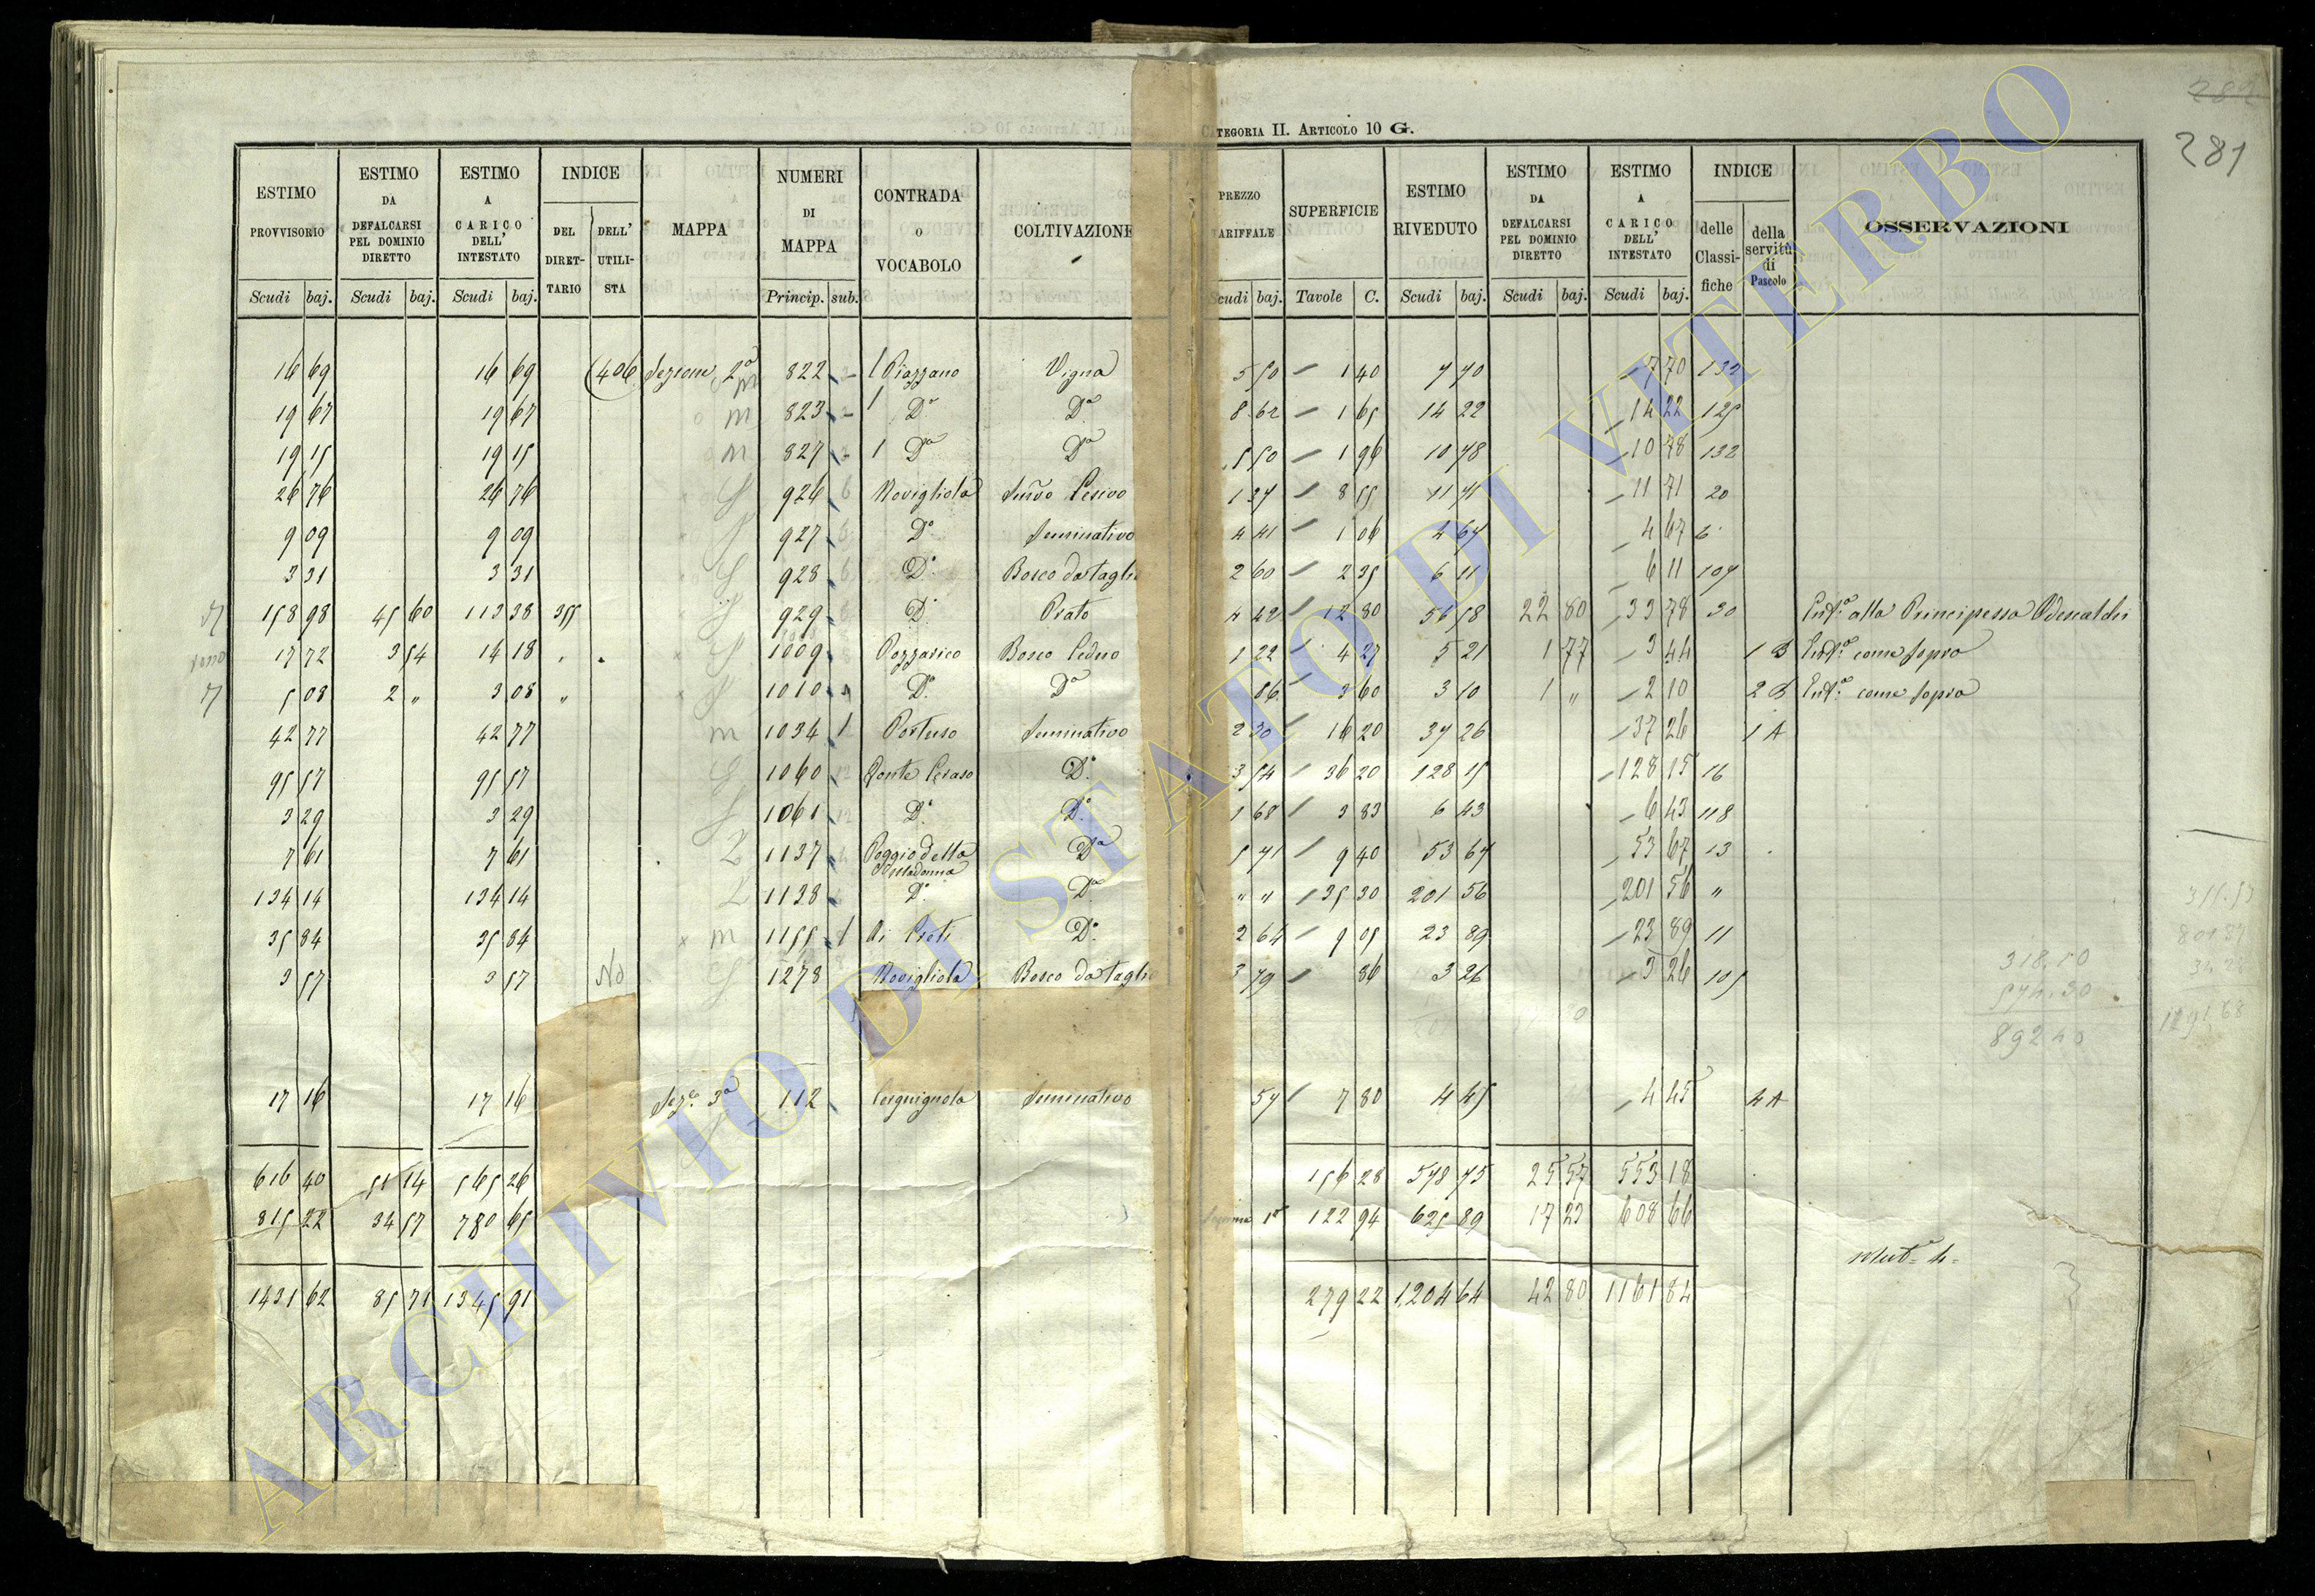 CATEGORIA II. ARTICOLO 10 G.
282
281
ESTIMO PROVVISORIO Scudi baj. | ESTIMO DA DEFALCARSI PEL DOMINIO DIRETTO Scudi baj. | ESTIMO A CARICO DELL' INTESTATO Scudi baj. | INDICE DEL DIRETTARIO | DELL' UTILISTA | MAPPA | NUMERI DI MAPPA Princip. sub. | CONTRADA o VOCABOLO | COLTIVAZIONE | PREZZO TARIFFALE Scudi baj. | SUPERFICIE Tavole C. | ESTIMO RIVEDUTO Scudi baj. | ESTIMO DA DEFALCARSI PEL DOMINIO DIRETTO Scudi baj. | ESTIMO A CARICO DELL' INTESTATO Scudi baj. | INDICE delle Classifiche | della servitù di Pascolo | OSSERVAZIONI
16 69 16 69 406 Sezione 2a m 822 Piazzano Vigna 5 50 1 40 7 70 7 70 132
19 67 19 67 m 823 Do Da 8 62 1 65 14 22 14 22 125
19 15 19 15 m 827 Da Da 5 50 1 96 10 78 10 78 132
26 76 26 76 926 6 Rovigliola Semvo Cesivo 1 37 8 55 11 71 11 71 20
9 09 9 09 927 6 Do Seminativo 4 41 1 06 4 67 4 67 6
3 31 3 31 928 6 Do Bosco da taglio 2 60 2 35 6 11 6 11 107
158 98 45 60 113 38 355 929 6 Do Prato 4 42 12 80 56 58 22 80 33 78 30 Enfa alla Principessa Odescalchi
17 72 3 54 14 18 1009 Pozzarico Bosco Ceduo 1 22 4 27 5 21 1 77 3 44 1 B Enfa come sopra
5 08 2 " 3 08 " 1010 Do Da 86 3 60 3 10 1 " 2 10 2 B Enfa come sopra
42 77 42 77 m 1034 1 Portuso Seminativo 2 30 16 20 37 26 37 26 1 A
95 57 95 57 1060 12 Fonte Ceraso Do 3 54 36 20 128 15 128 15 16
3 29 3 29 1061 12 Do Do 1 68 3 83 6 43 6 43 118
7 61 7 61 1137 Poggio della Madonna Da 5 71 9 40 53 67 53 67 13
134 14 134 14 1138 Do Da " " 35 30 201 56 201 56 "
35 84 35 84 m 1155 1 Ai Preti Do 2 64 9 05 23 89 23 89 11
3 57 3 57 No 1278 Rovigliola Bosco da taglio 3 79 86 3 26 3 26 105
318.50
574.30
892 40
17 16 17 16 Seze 3a 112 Cerquignola Seminativo 57 7 80 4 45 4 45 4 A
616 40 51 14 565 26 156 28 578 75 25 57 553 18
815 22 34 57 780 65 Somma 1a 122 94 625 89 17 23 608 66
Muta 4
1431 62 85 71 1345 91 279 22 1204 64 42 80 1161 84
ARCHIVIO DI STATO DI VITERBO